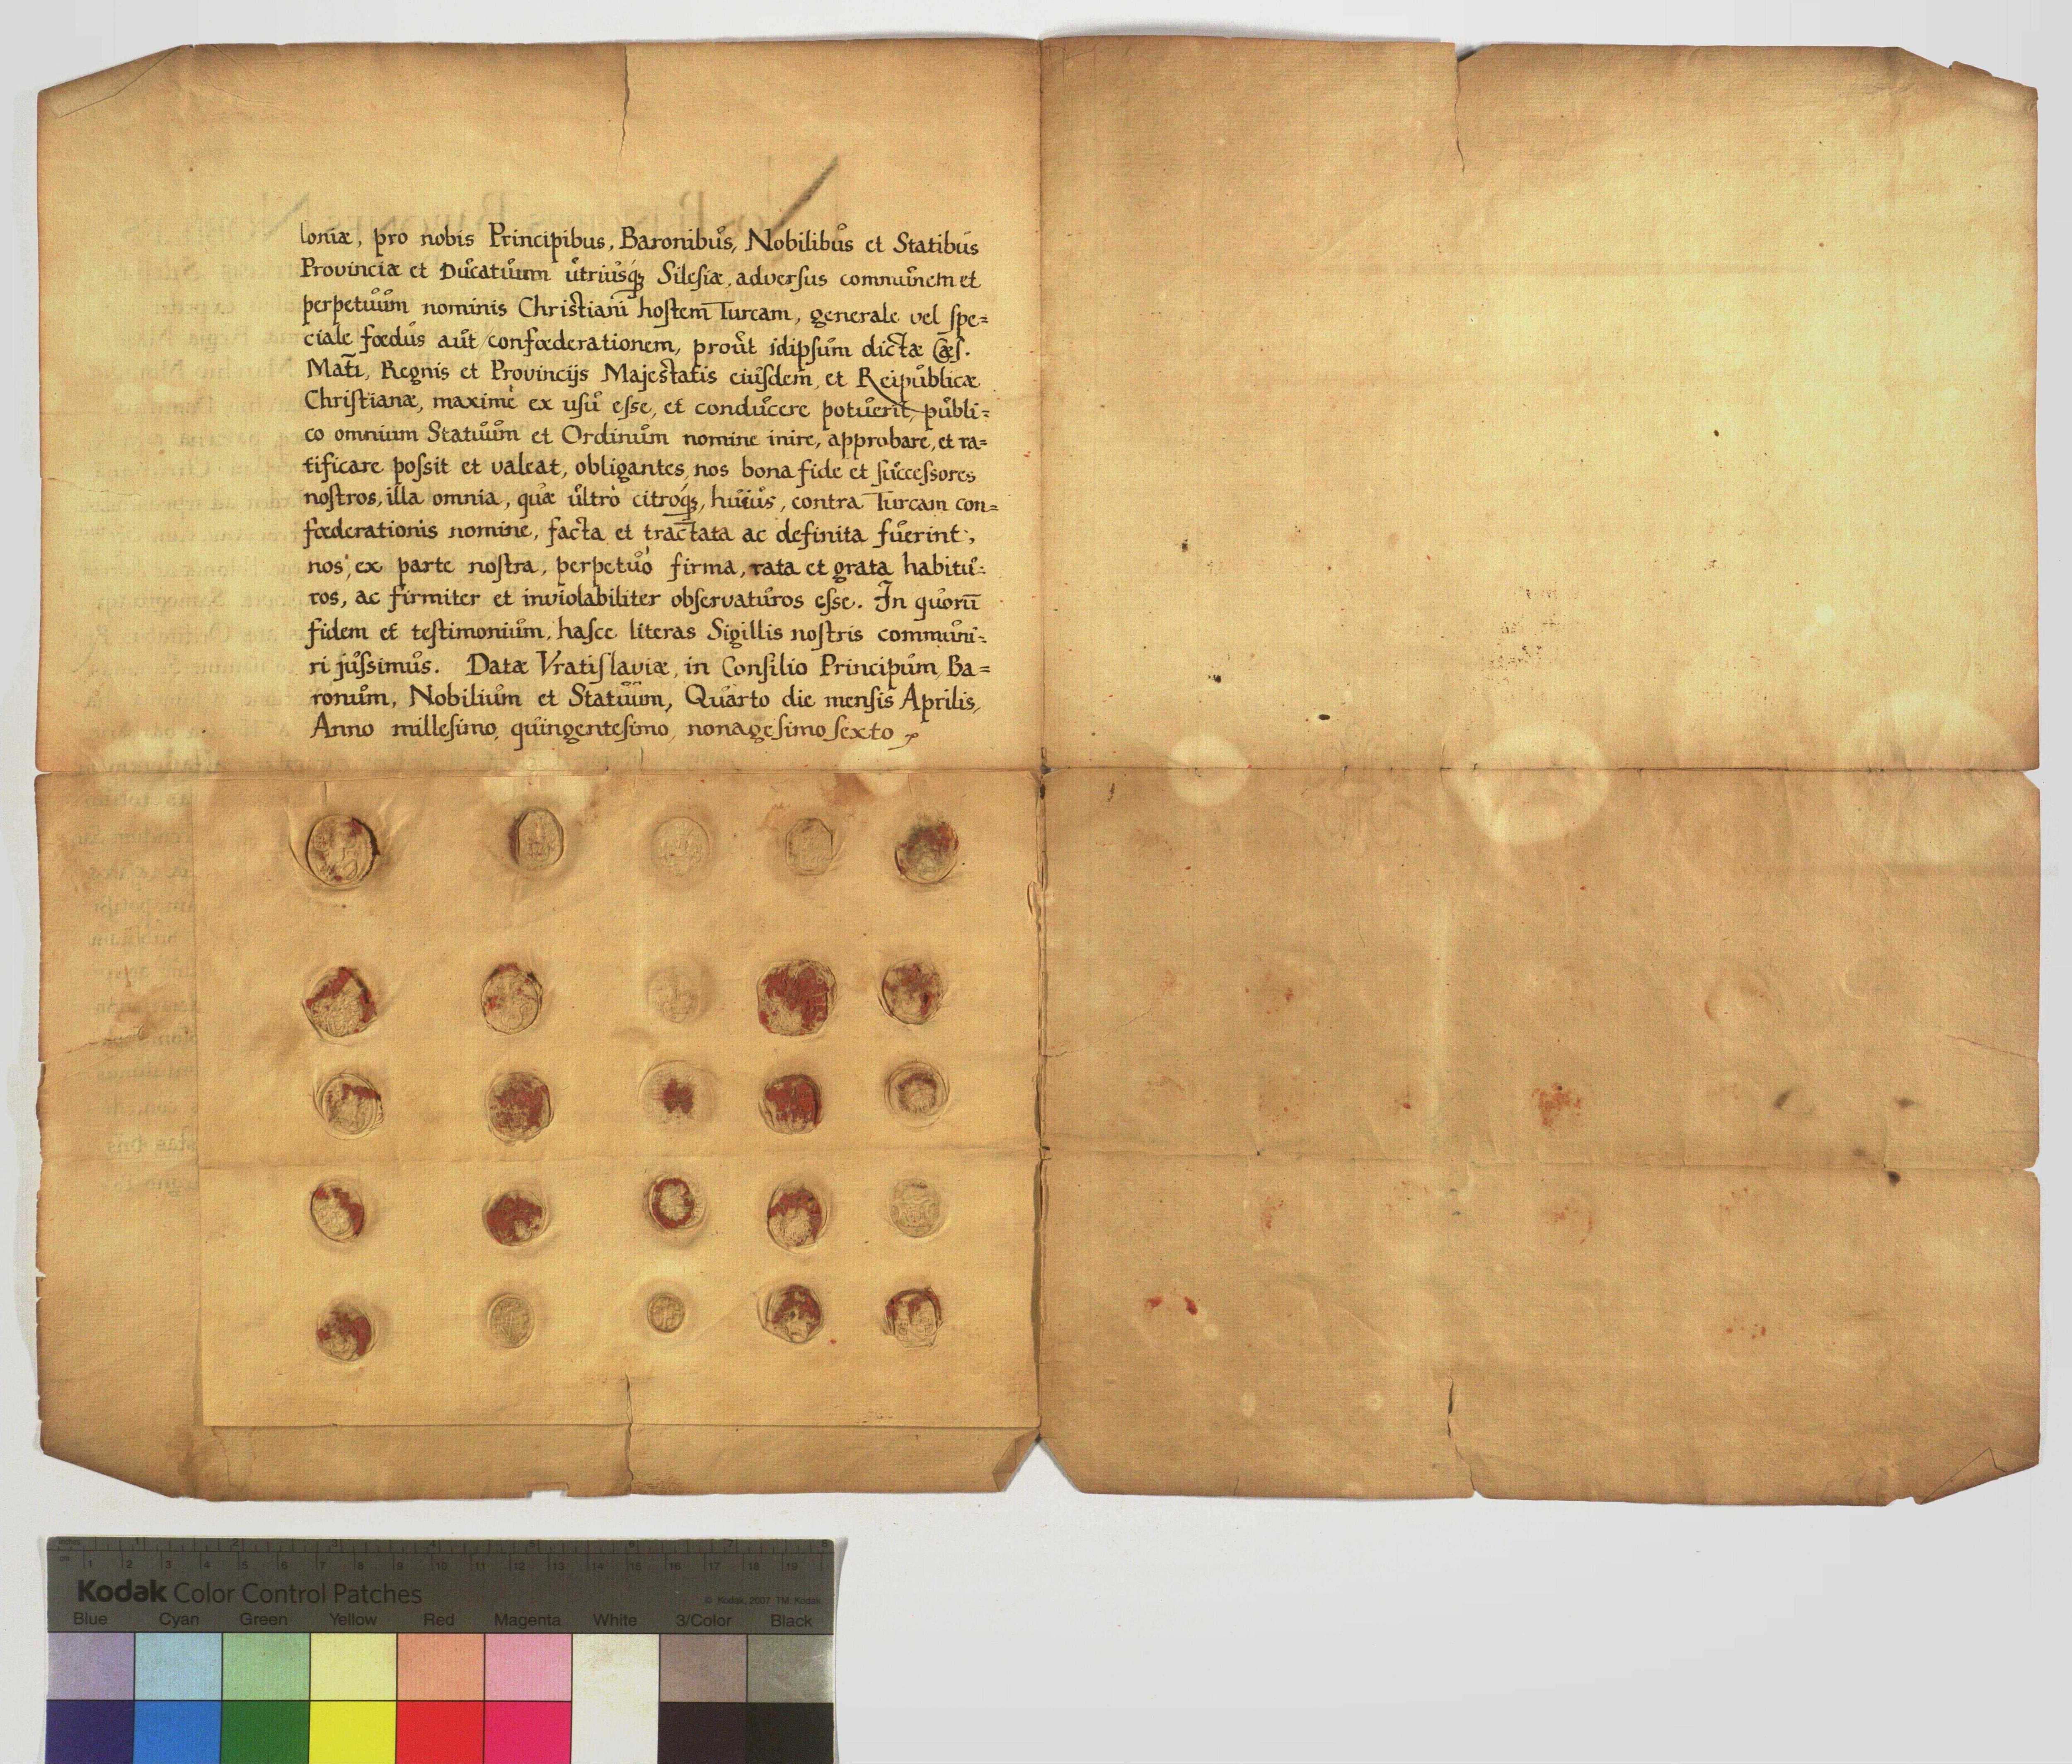 loniæ, pro nobis Principibus, Baronibůs, Nobilibůs et Statibůs
Provinciæ et Ducatůům ůtriůsq́ꝫ Sileſiæ, adverſus commůnem et
perpetůům nominis Chriſtiani hoſtem Turcam, generale vel ſpe=
ciale fœdůs aůt confœderationem, proůt idipſům dictæ Cæſ.
Matĩ, Regnis et Provincijs Majeſtatis eiůſdem, et Reipůblicæ
Chriſtianæ, maximè ex uſů eſse, et condůcere potůerit, půbli=
co omnium Statůům et Ordinům nomine inire, approbare, et ra=
tificare poſsit et valeat, obligantes nos bona fide et ſůcceſsores
noſtros, illa omnia, quæ ůltrò citroq́ꝫ, huiůs, contra Turcam con=
fœderationis nomine, facta et tractata ac definita fůerint,
nos, ex parte noſtra, perpetůò firma, rata et grata habitů=
ros, ac firmiter et inviolabiliter obſervatůros eſse. In qůorū
fidem et teſtimoniům, haſce literas Sigillis noſtris commůni=
ri jůſsimůs. Datæ Vratiſlaviæ, in Conſilio Principům, Ba=
ronům, Nobiliům et Statůům, Qůarto die menſis Aprilis,
Anno milleſimo, qůingenteſimo, nonageſimo ſexto
Kodak Color Control Patches
© Kodak, 2007 TM: Kodak
Blue Cyan Green Yellow Red Magenta White 3/Color Black